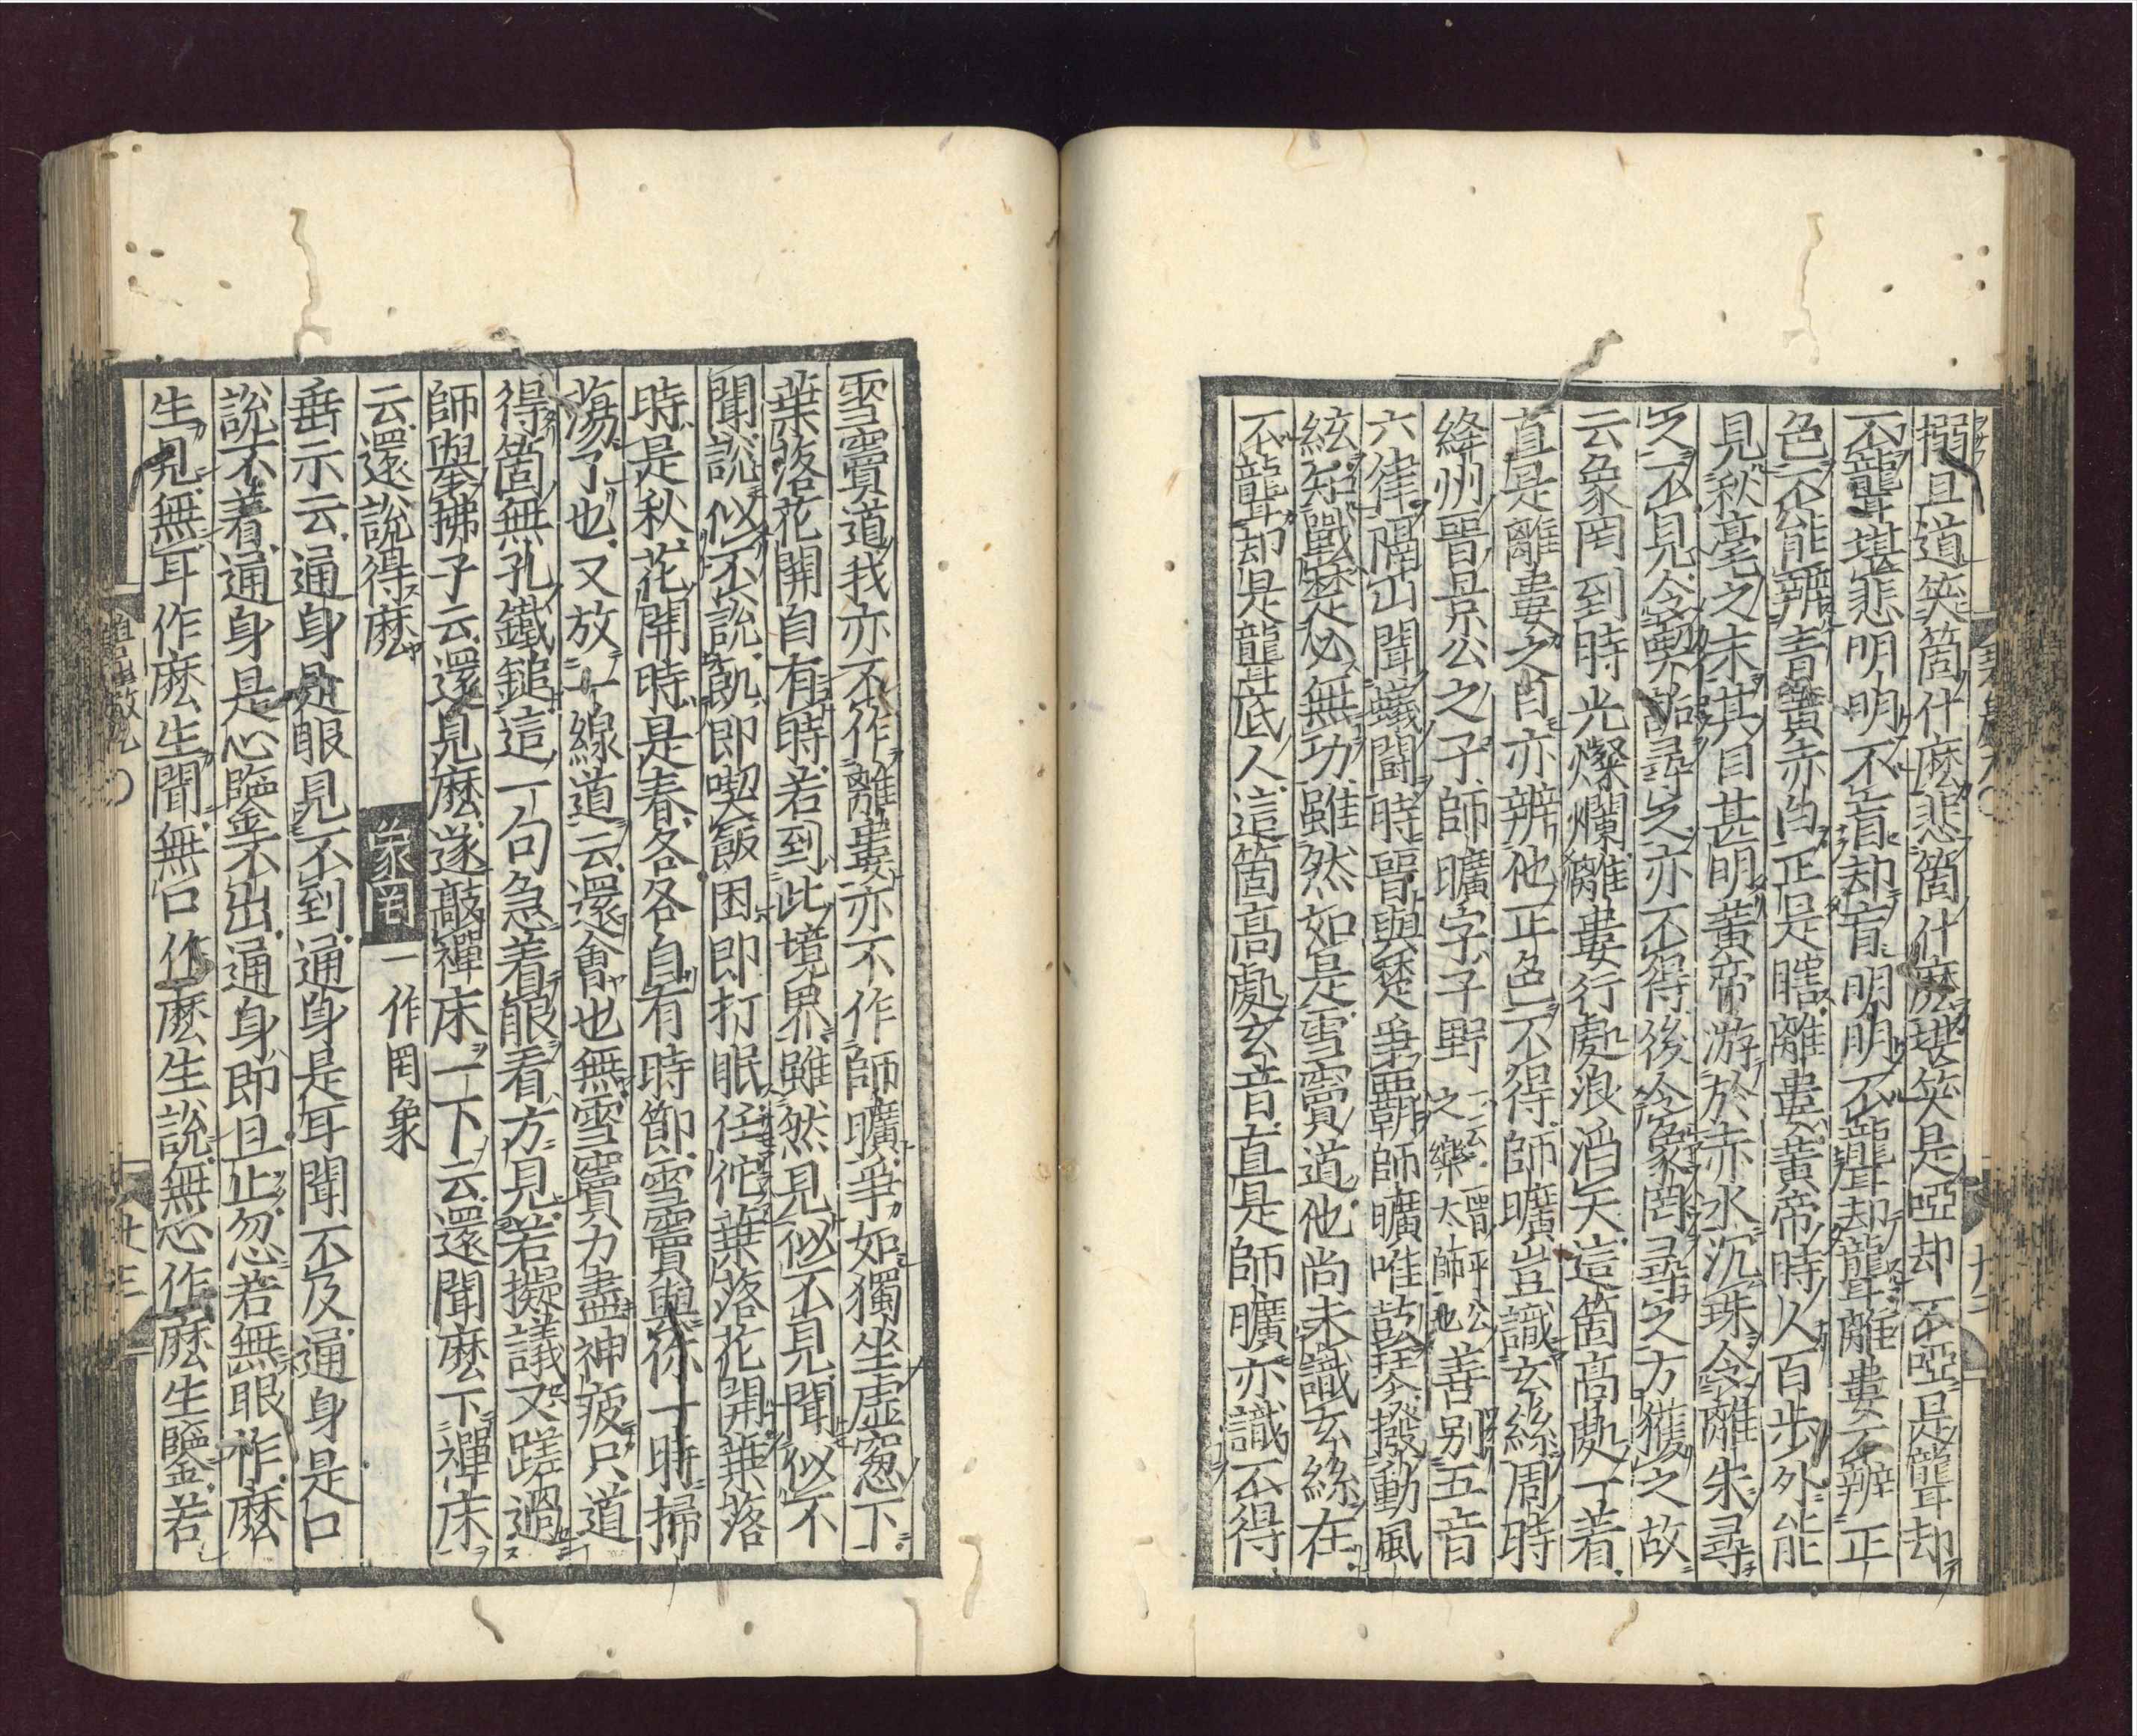 搦且道笑箇什麽悲箇什麽堪笑是啞却不啞是聾却
不聾堪悲明明不盲却盲明明不聾却聾離婁不辨正
色不能辨青黄赤白正是瞎離婁黄帝時人百歩外能
見秋毫之末其目甚明黄帝游於赤水沉珠令離朱尋
之不見令喫詬尋之亦不得後令象罔尋之方獲之故
云象罔到時光燦爛離婁行處浪滔天這箇高處一着
直是離婁之目亦辨他正色不得師曠豈識玄絲周時
絳州晉景公之子師曠字子野
一云晉平公
之樂太師也
善别五音
六律隔山聞蟻鬪時晉與楚爭覇師曠唯鼓琴撥動風
絃知戰楚必無功雖然如是雪竇道他尚未識玄絲在
不聾却是聾底人這箇高處玄音直是師曠亦識不得
雪竇道我亦不作離婁亦不作師曠爭如獨坐虚窓下
葉落花開自有時若到此境界雖然見似不見聞似不
聞説似不説飢即喫飯困即打眠任佗葉落花開葉落
時是秋花開時是春各各自有時節雪竇與徐一時掃
蕩了也又放一線道云還會也無雪竇力盡神疲只道
得箇無孔鐵鎚這一句急着眼看方見若擬議又蹉過
師擧拂子云還見麽遂敲禪床一下云還聞麽下禪床
云還説得麽
象罔
一作罔象
垂示云通身是眼見不到通身是耳聞不及通身是口
説不着通身是心鑒不出通身即且止忽若無眼作麽
生見無耳作麽生聞無口作麽生説無心作麽生鑒若